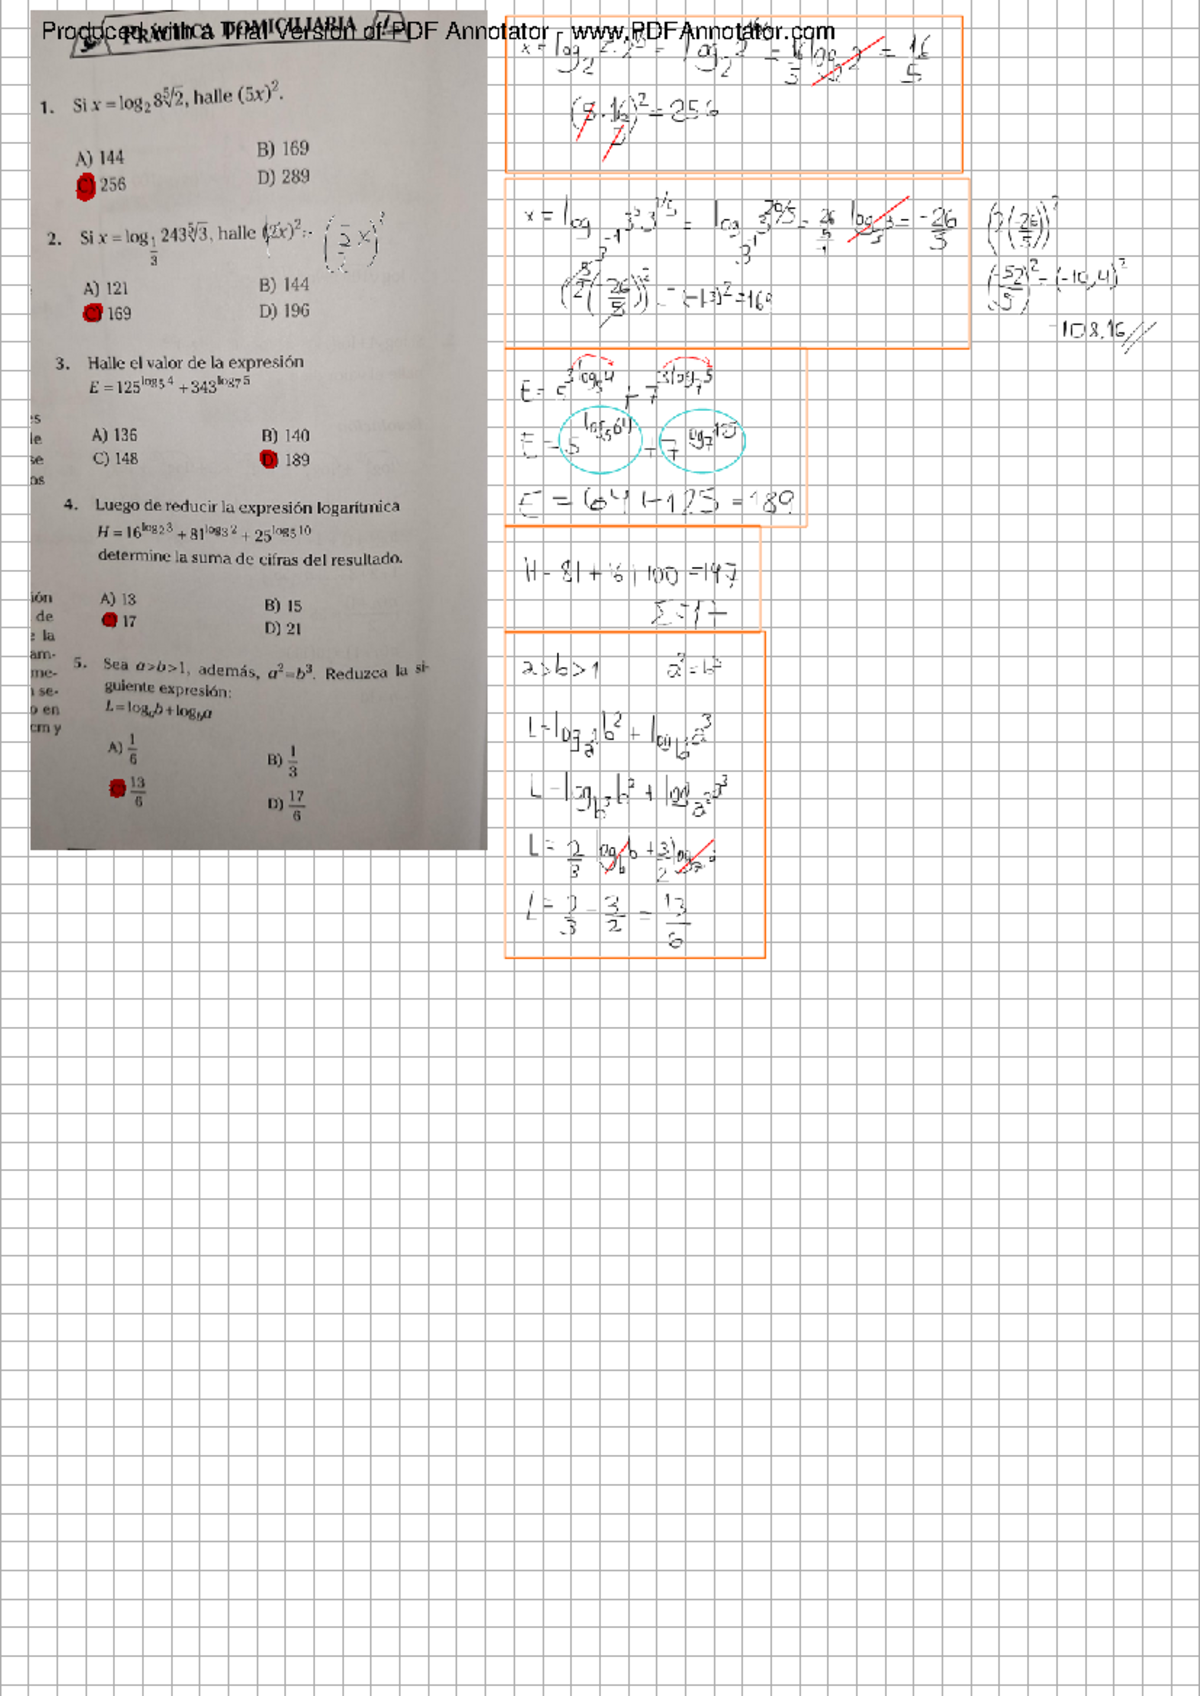 Produced with a Trial Version of PDF Annotator - www.PDFAnnotator.com
PRÁCTICA DOMICILIARIA
1. Si x = log₂ 8⁵√2, halle (5x)².
A) 144
B) 169
C) 256
D) 289
2. Si x = log_{1/3} 243⁵√3, halle (2x)².
(5/2 x)²
A) 121
B) 144
C) 169
D) 196
3. Halle el valor de la expresión
E = 125^{log₅4} + 343^{log₇5}
A) 136
B) 140
C) 148
D) 189
4. Luego de reducir la expresión logarítmica
H = 16^{log₂3} + 81^{log₃2} + 25^{log₅10}
determine la suma de cifras del resultado.
A) 13
B) 15
17
D) 21
5. Sea a>b>1, además, a²=b³. Reduzca la si-
guiente expresión:
L = logₐb + log_b a
A) 1/6
B) 1/3
13/6
D) 17/6
es
le
se
os
ión
de
la
am-
me-
se-
o en
cm y
= 16/5
)² = 256
= -26/5
= (-13)² = 169
= (-10,4)²
108.16//
E = 5^{3log₅4} + 7^{3log₇5}
E = 5^{log₅64} + 7^{log₇125}
E = 64 + 125 = 189
H = 81 + 16 + 100 = 197
Σ = 17
a>b>1 a²=b³
L = 2/3 log_b b + 3/2 logₐ a
= 13/6